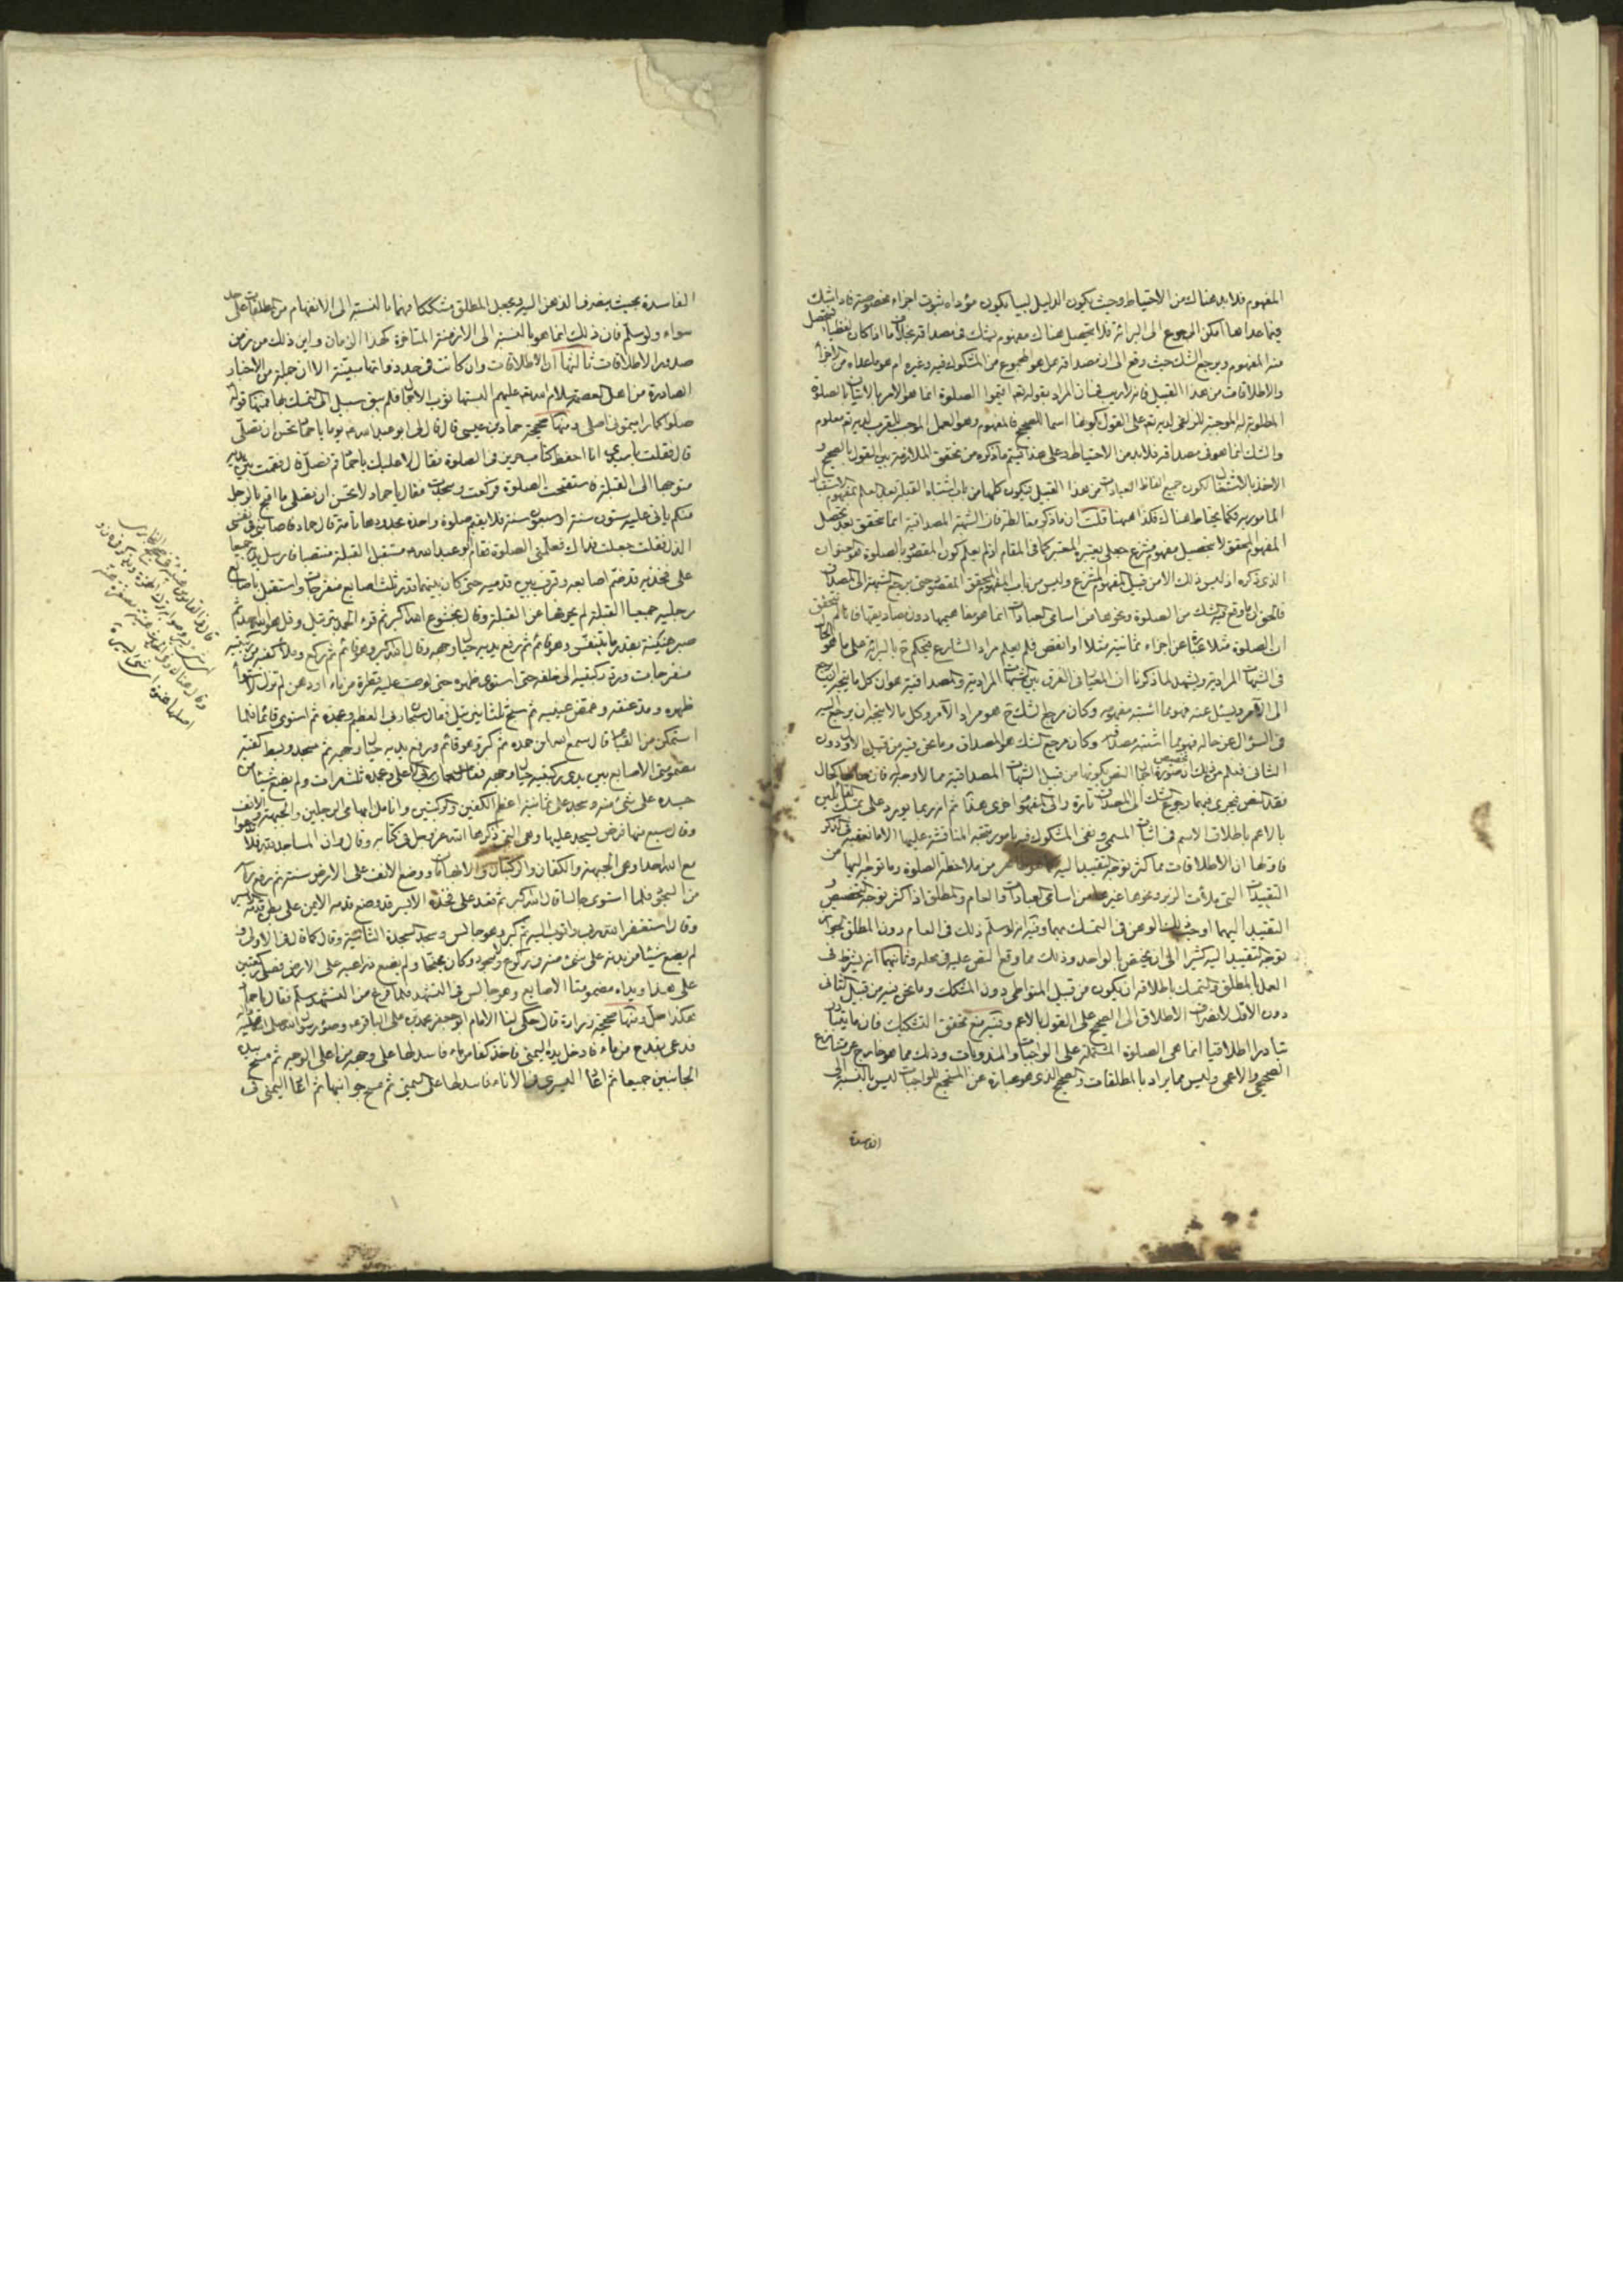 المفهوم فلا بد هناك من الاحتياط وحيث يكون الدليل لبيا يكون مؤداه ثبوت اجزاء مخصوصة فاذا شك
فيما عداها امكن الرجوع الى البرائة فلا يتحصل هناك مفهوم يشك فى مصداقه بخلاف ما اذا كان لفظيا
منه المفهوم ويرجع الشك حيث وقع الى ان مصداقه هل هو المجموع من المشكوك فيه وغيره ام هو ما عداه من الاجزاء
والاطلاقات من هذا القبيل فانه لا ريب فى ان المراد بقوله تعالى اقيموا الصلوة انما هو الامر بالاتيان بالصلوة
المطلوبة له الموجبة للزلفى لديه تعالى على القول بكونها اسما للصحيح فالمفهوم وهو العمل الموجب للقرب لديه تعالى معلوم
والشك انما هو فى مصداقه فلا بد من الاحتياط وعلى هذا يتم ما ذكروه من تحقق الملازمة بين القول بالصحيح و
الاخذ بالاشتغال لكون جميع الفاظ العبادات من هذا القبيل فيكون كلها من باب اشتباه القبلة
المامور به فكما يحتاط هناك فكذا ههنا قلت ان ما ذكر مغالطة فان الشبهة المصداقية انما تتحقق بعد تحصل
المفهوم المحقق لا بتحصيل مفهوم منتزع جعلى يعتبره المعتبر كما فى المقام اذ لم يعلم كون المقصود بالصلوة هو
الذى ذكره اذ ليس ذلك الا من قبيل المفهوم المنتزع وليس من باب المفهوم المحقق المقصود حتى يرجع الشبهة الى المصداق
فالحق ان ما وقع فيه الشك من الصلوة ونحوها من اسامى العبادات انما هو مفاهيمها دون مصاديقها فانا لم نتحقق
ان الصلوة مثلا عبارة عن اجزاء ثمانية مثلا او انقص فلم يعلم مراد الشارع فيحكم ح بالبرائة على ما هو الحال
فى الشبهات المرادية ويشهد لما ذكرنا ان المعيار فى الفرق بين الشبهات المرادية والمصداقية هو ان كل ما ينتجه ان يرجع
الى الآمر ويسئل عنه فهو مما اشتبه مفهومه وكان مرجع الشك ح هو مراد الآمر وكل ما لا ينتجه ان يرجع اليه
فى السؤال عن حاله فهو مما اشتبه مصداقه وكان مرجع الشك هو المصداق وما نحن فيه من قبيل الاول دون
الثانى فعلم من ذلك ان تخصيص صورة اجمال النص بكونها من قبيل الشبهات المصداقية مما لا وجه له فان حالها كحال
فقد النص فيجرى فيهما رجوع الشك الى المصداق تارة والى المفهوم اخرى هذا ثم انه ربما يورد على تمسك القائلين
بالاعم باطلاق الاسم فى اثبات المسمى ونفى المشكوك فيه بامور يتجه المناقشة عليها الا ما نعقبه فى الذكر
فاولها ان الاطلاقات مما كثر توجه التقييد اليها كما هو ظاهر من ملاحظة الصلوة وما توجه اليها من
التقييدات التى ملأت الزبر ونحوها غيرها من اسامى العبادات والعام والمطلق اذا كثر توجه التخصيص و
التقييد اليهما اوجب ذلك الوهن فى التمسك بهما وفيه انه لو سلم ذلك فى العام دون المطلق لجواز
توجه التقييد اليه كثيرا الى ان يختص بالواحد وذلك مما وقع النص عليه فى محله وثانيهما انه يشترط فى
العمل بالمطلق والتمسك باطلاقه ان يكون من قبيل المتواطى دون المشكك وما نحن فيه من قبيل الثانى
دون الاول لانصراف الاطلاق الى الصحيح على القول بالاعم وفيه منع تحقق التشكيك فان ما يتبادر
تبادرا اطلاقيا انما هى الصلوة المشتملة على الواجبات والمندوبات وذلك مما هو خارج عن تنازع
الصحيحى والاعمى وليس مما يراد بالمطلقات والصحيح الذى هو عبارة عن المستجمع للواجبات ليس بالنسبة الى
الفاسدة
الفاسدة بحيث ينصرف الذهن اليه ويجعل المطلق مشككا وانهما بالنسبة الى الانفهام من المطلقات على حد
سواء ولو سلم فان ذلك انما هو بالنسبة الى الازمنة المتاخرة كهذا الزمان واين ذلك من زمن
صدور الاطلاقات ثالثها ان الاطلاقات وان كانت فى حدود ذاتها مبينة الا ان جملة من الاخبار
الصادرة من اهل العصمة سلام الله عليهم البستها ثوب الاجمال فلم يبق سبيل الى التمسك بها فمنها قوله
صلوا كما رايتمونى اصلى ومنها صحيحة حماد بن عيسى قال قال لى ابو عبد الله ع يوما يا حماد تحسن ان تصلى
قال فقلت يا سيدى انا احفظ كتاب حريز فى الصلوة فقال لا عليك يا حماد قم فصل قال فقمت بين يديه
متوجها الى القبلة فاستفتحت الصلوة فركعت وسجدت فقال يا حماد لا تحسن ان تصلى ما اقبح بالرجل
منكم ياتى عليه ستون سنة او سبعون سنة فلا يقيم صلوة واحدة بحدودها تامة قال حماد فاصابنى فى نفسى
الذل فقلت جعلت فداك فعلمنى الصلوة فقام ابو عبد الله ع مستقبل القبلة منتصبا فارسل يديه جميعا
على فخذيه قد ضم اصابعه وقرب بين قدميه حتى كان بينهما قدر ثلث اصابع منفرجات واستقبل باصابع
رجليه جميعا القبلة لم يحرفها عن القبلة وقال بخشوع الله اكبر ثم قرء الحمد بترتيل وقل هو الله احد ثم
صبر هنيئة بقدر ما يتنفس وهو قائم ثم رفع يديه حيال وجهه وقال الله اكبر وهو قائم ثم ركع وملأ كفيه من ركبتيه
منفرجات ورد ركبتيه الى خلفه حتى استوى ظهره حتى لو صب عليه قطرة من ماء او دهن لم تزل لاستواء
ظهره ومد عنقه وغمض عينيه ثم سبح ثلثا بترتيل فقال سبحان ربى العظيم وبحمده ثم استوى قائما فلما
استمكن من القيام قال سمع الله لمن حمده ثم كبر وهو قائم ورفع يديه حيال وجهه ثم سجد وبسط كفيه
مضمومتى الاصابع بين يدى ركبتيه حيال وجهه فقال سبحان ربى الاعلى وبحمده ثلث مرات ولم يضع شيئا من
جسده على شئ منه وسجد على ثمانية اعظم الكفين والركبتين وانامل ابهامى الرجلين والجبهة والانف
وقال سبع منها فرض يسجد عليها وهى التى ذكرها الله عز وجل فى كتابه وقال وان المساجد لله فلا تدعوا
مع الله احدا وهى الجبهة والكفان والركبتان والابهامان ووضع الانف على الارض سنة ثم رفع راسه
من السجود فلما استوى جالسا قال الله اكبر ثم قعد على فخذه الايسر قد وضع قدمه الايمن على بطن قدمه الايسر
وقال استغفر الله ربى واتوب اليه ثم كبر وهو جالس وسجد السجدة الثانية وقال كما قال فى الاولى و
لم يضع شيئا من بدنه على شئ منه فى ركوع وسجود وكان مجنحا ولم يضع ذراعيه على الارض فصلى ركعتين
على هذا ويداه مضمومتا الاصابع وهو جالس فى التشهد فلما فرغ من التشهد سلم فقال يا حماد
هكذا صل ومنها صحيحة زرارة قال حكى لنا الامام ابو جعفر محمد بن على الباقر ع وضوء رسول الله صلى الله عليه وآله
فدعى بقدح من ماء فادخل يده اليمنى فاخذ كفا من ماء فاسدلها على وجهه من اعلى الوجه ثم مسح بيده
الجانبين جميعا ثم اعاد اليسرى فى الاناء فاسدلها على اليمنى ثم مسح جوانبها ثم اعاد اليمنى فى